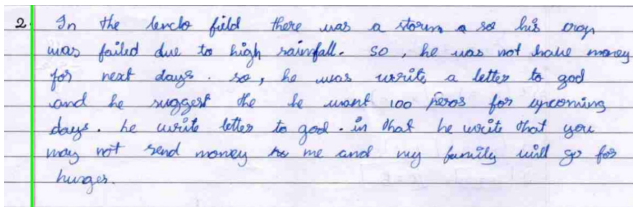 2. In the lencho field there was a storm a so his crop
was failed due to high rainfall. so, he was not have money
for next days. so, he was write a letter to god
and he suggest the he want 100 pesos for upcoming
days. he write letter to god. in that he write that you
may not send money to me and my family will go for
hunger.